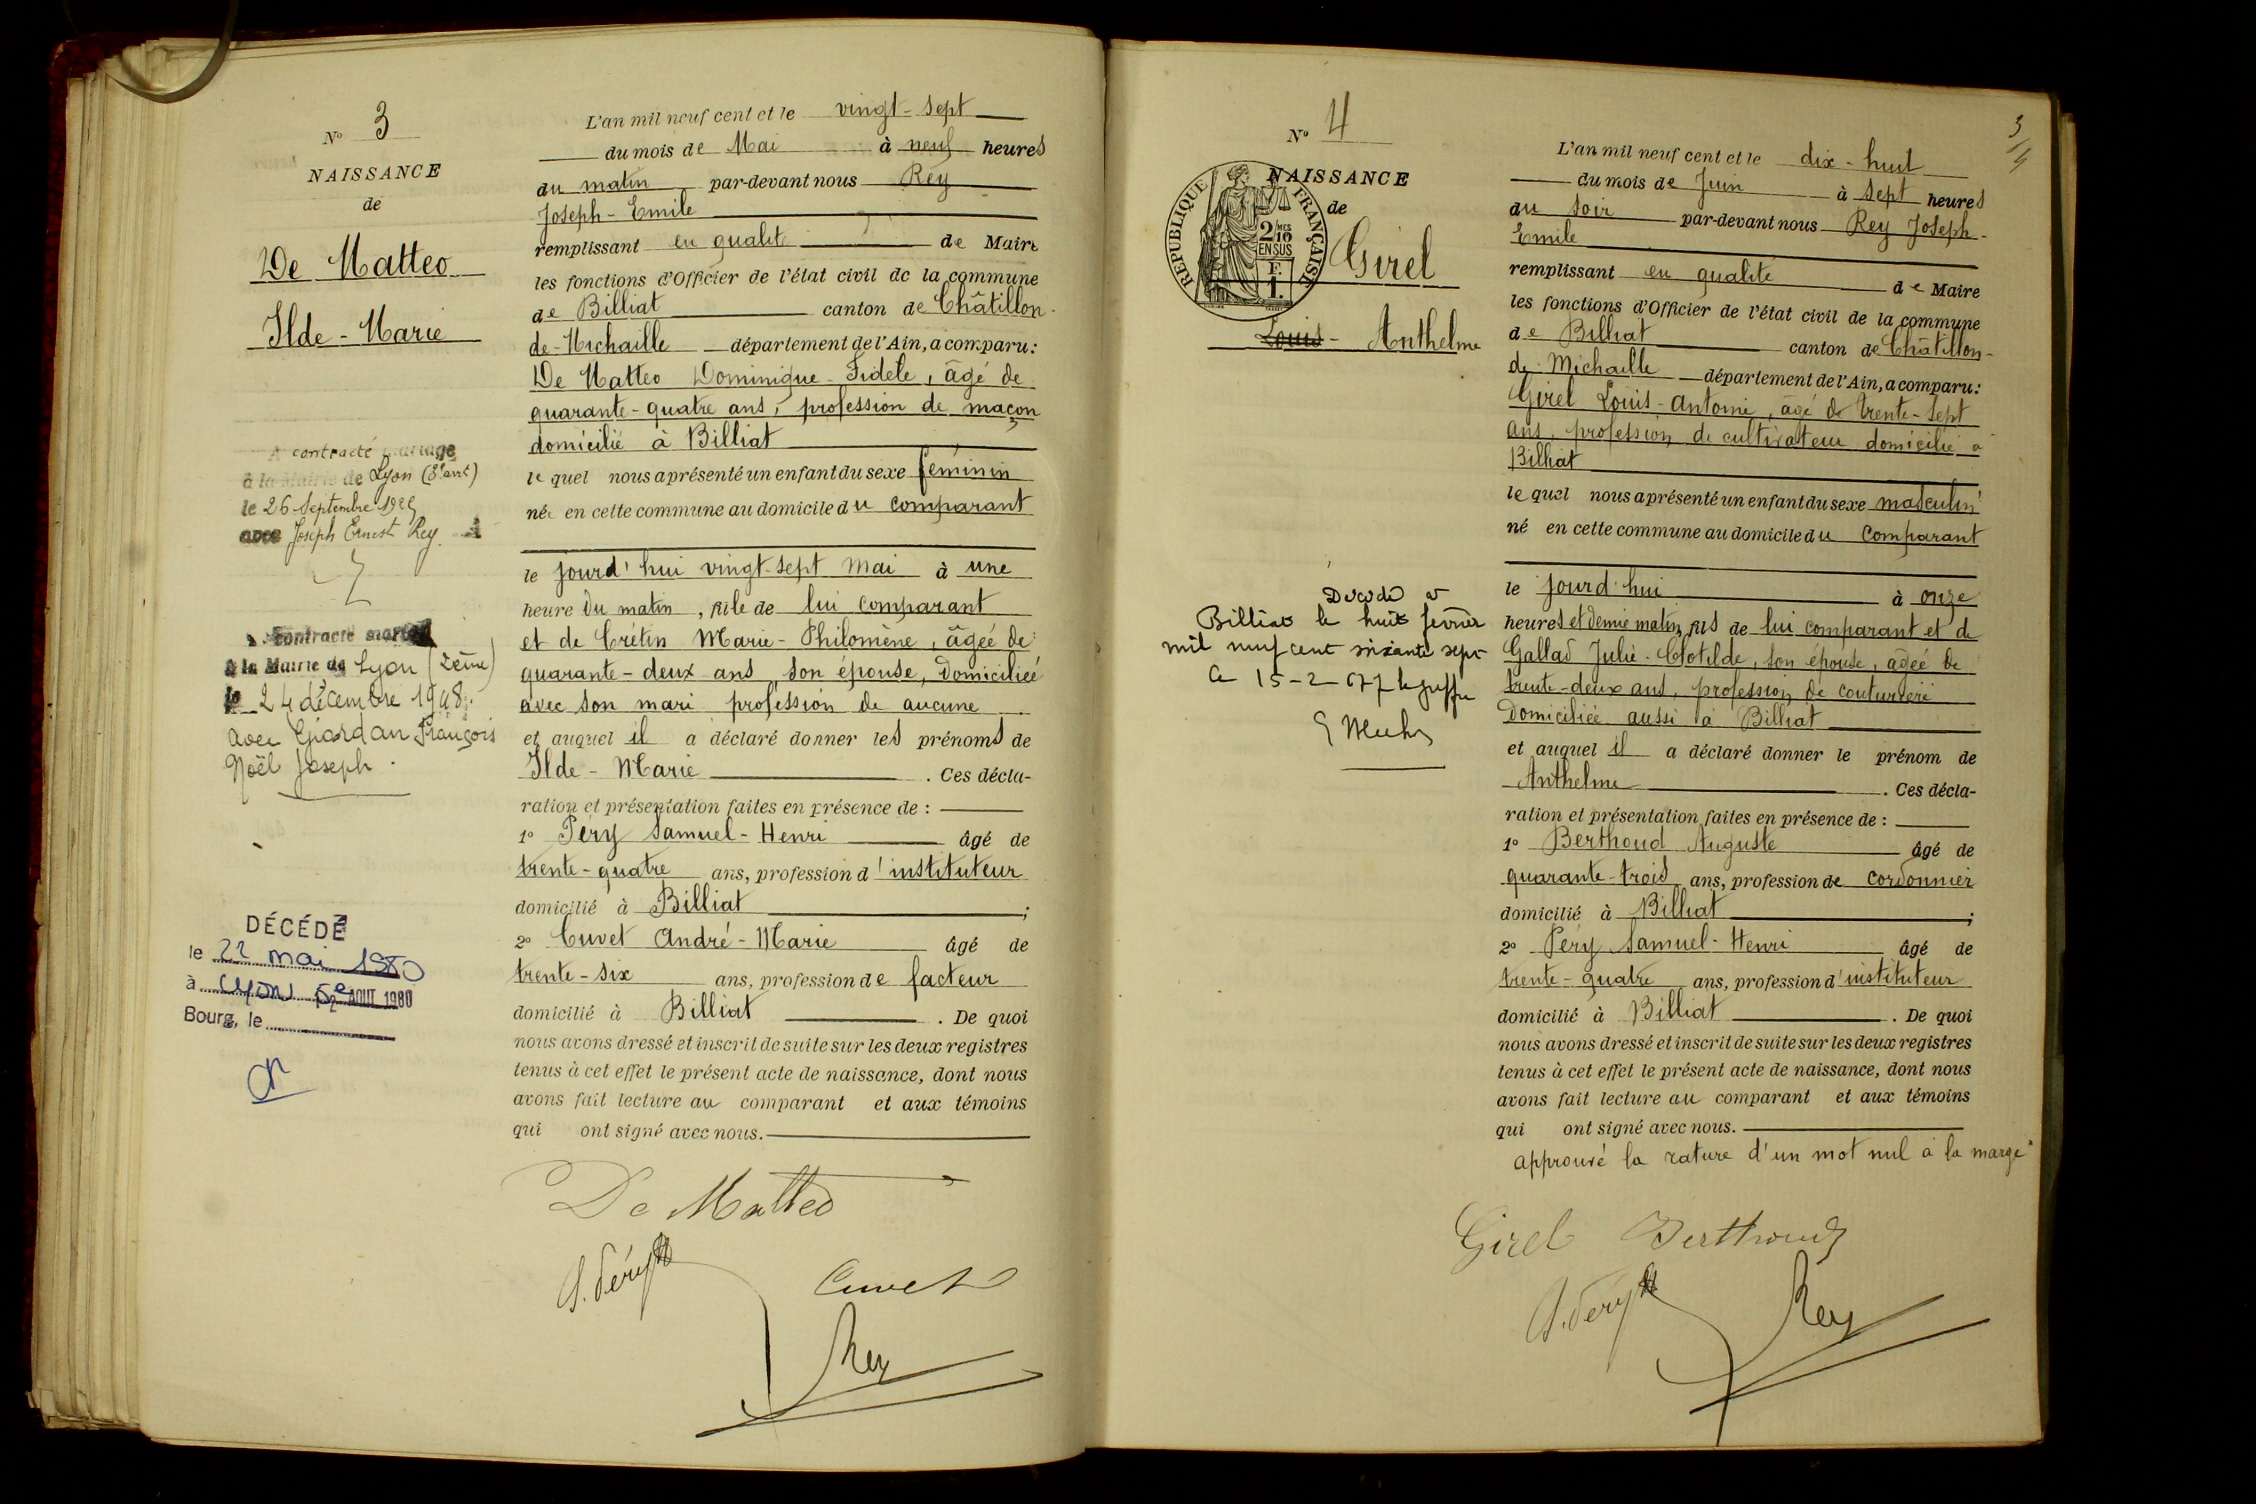 N° 3
NAISSANCE
de
De Matteo
Ilde - Marie
A contracté mariage
à la Mairie de Lyon (3e arrt)
le 26 Septembre
avec Joseph Ernest Rey
contracté
à la Mairie de Lyon (2ème)
le 24 décembre 1948
avec Giordan François
Noël Joseph.
DÉCÉDÉ
le 22 mai 1980
à Lyon 5e
AOUT 1980
Bourg, le
L'an mil neuf cent et le vingt-sept
du mois de Mai à neuf heures
du matin par-devant nous Rey
Joseph-Emile
remplissant en qualit de Maire
les fonctions d'Officier de l'état civil de la commune
de Billiat canton de Châtillon-
de-Michaille département de l'Ain, a comparu:
De Matteo Dominique-Fidele, âgé de
quarante-quatre ans, profession de maçon
domicilié à Billiat
le quel nous a présenté un enfant du sexe féminin
née en cette commune au domicile du comparant
le jourd'hui vingt-sept mai à une
heure du matin, fille de lui comparant
et de Crétin Marie-Philomène, âgée de
quarante-deux ans, son épouse, domiciliée
avec son mari profession de aucune
et auquel il a déclaré donner les prénoms de
Ilde-Marie. Ces décla-
ration et présentation faites en présence de :
1° Péry Samuel-Henri âgé de
trente-quatre ans, profession d'instituteur
domicilié à Billiat ;
2° Cuvet André-Marie âgé de
trente-six ans, profession de facteur
domicilié à Billiat. De quoi
nous avons dressé et inscrit de suite sur les deux registres
tenus à cet effet le présent acte de naissance, dont nous
avons fait lecture au comparant et aux témoins
qui ont signé avec nous.
De Matteo
S. Péry
Cuvet
Rey
3/4
N° 4
NAISSANCE
de
RÉPUBLIQUE FRANÇAISE
2/10 MES
EN SUS
F.
1.
Girel
Louis - Anthelme
Décédé à
Billiat le huit février
mil neuf cent soixante sept
Ce 15-2-67 le greffier
L'an mil neuf cent et le dix-huit
du mois de Juin à sept heures
du soir par-devant nous Rey Joseph-
Emile
remplissant en qualité de Maire
les fonctions d'Officier de l'état civil de la commune
de Billiat canton de Châtillon-
de-Michaille département de l'Ain, a comparu:
Girel Louis-Antoine, âgé de trente-sept
ans, profession de cultivateur domicilié à
Billiat
le quel nous a présenté un enfant du sexe masculin
né en cette commune au domicile du comparant
le jourd'hui à onze
heures et demie matin, fils de lui comparant et de
Gallad Julie-Clotilde, son épouse, âgée de
trente-deux ans, profession de couturière
domiciliée aussi à Billiat
et auquel il a déclaré donner le prénom de
Anthelme. Ces décla-
ration et présentation faites en présence de :
1° Berthoud Auguste âgé de
quarante-trois ans, profession de cordonnier
domicilié à Billiat ;
2° Péry Samuel-Henri âgé de
trente-quatre ans, profession d'instituteur
domicilié à Billiat. De quoi
nous avons dressé et inscrit de suite sur les deux registres
tenus à cet effet le présent acte de naissance, dont nous
avons fait lecture au comparant et aux témoins
qui ont signé avec nous.
approuvé la rature d'un mot nul à la marge
Girel Berthoud
S. Péry Rey